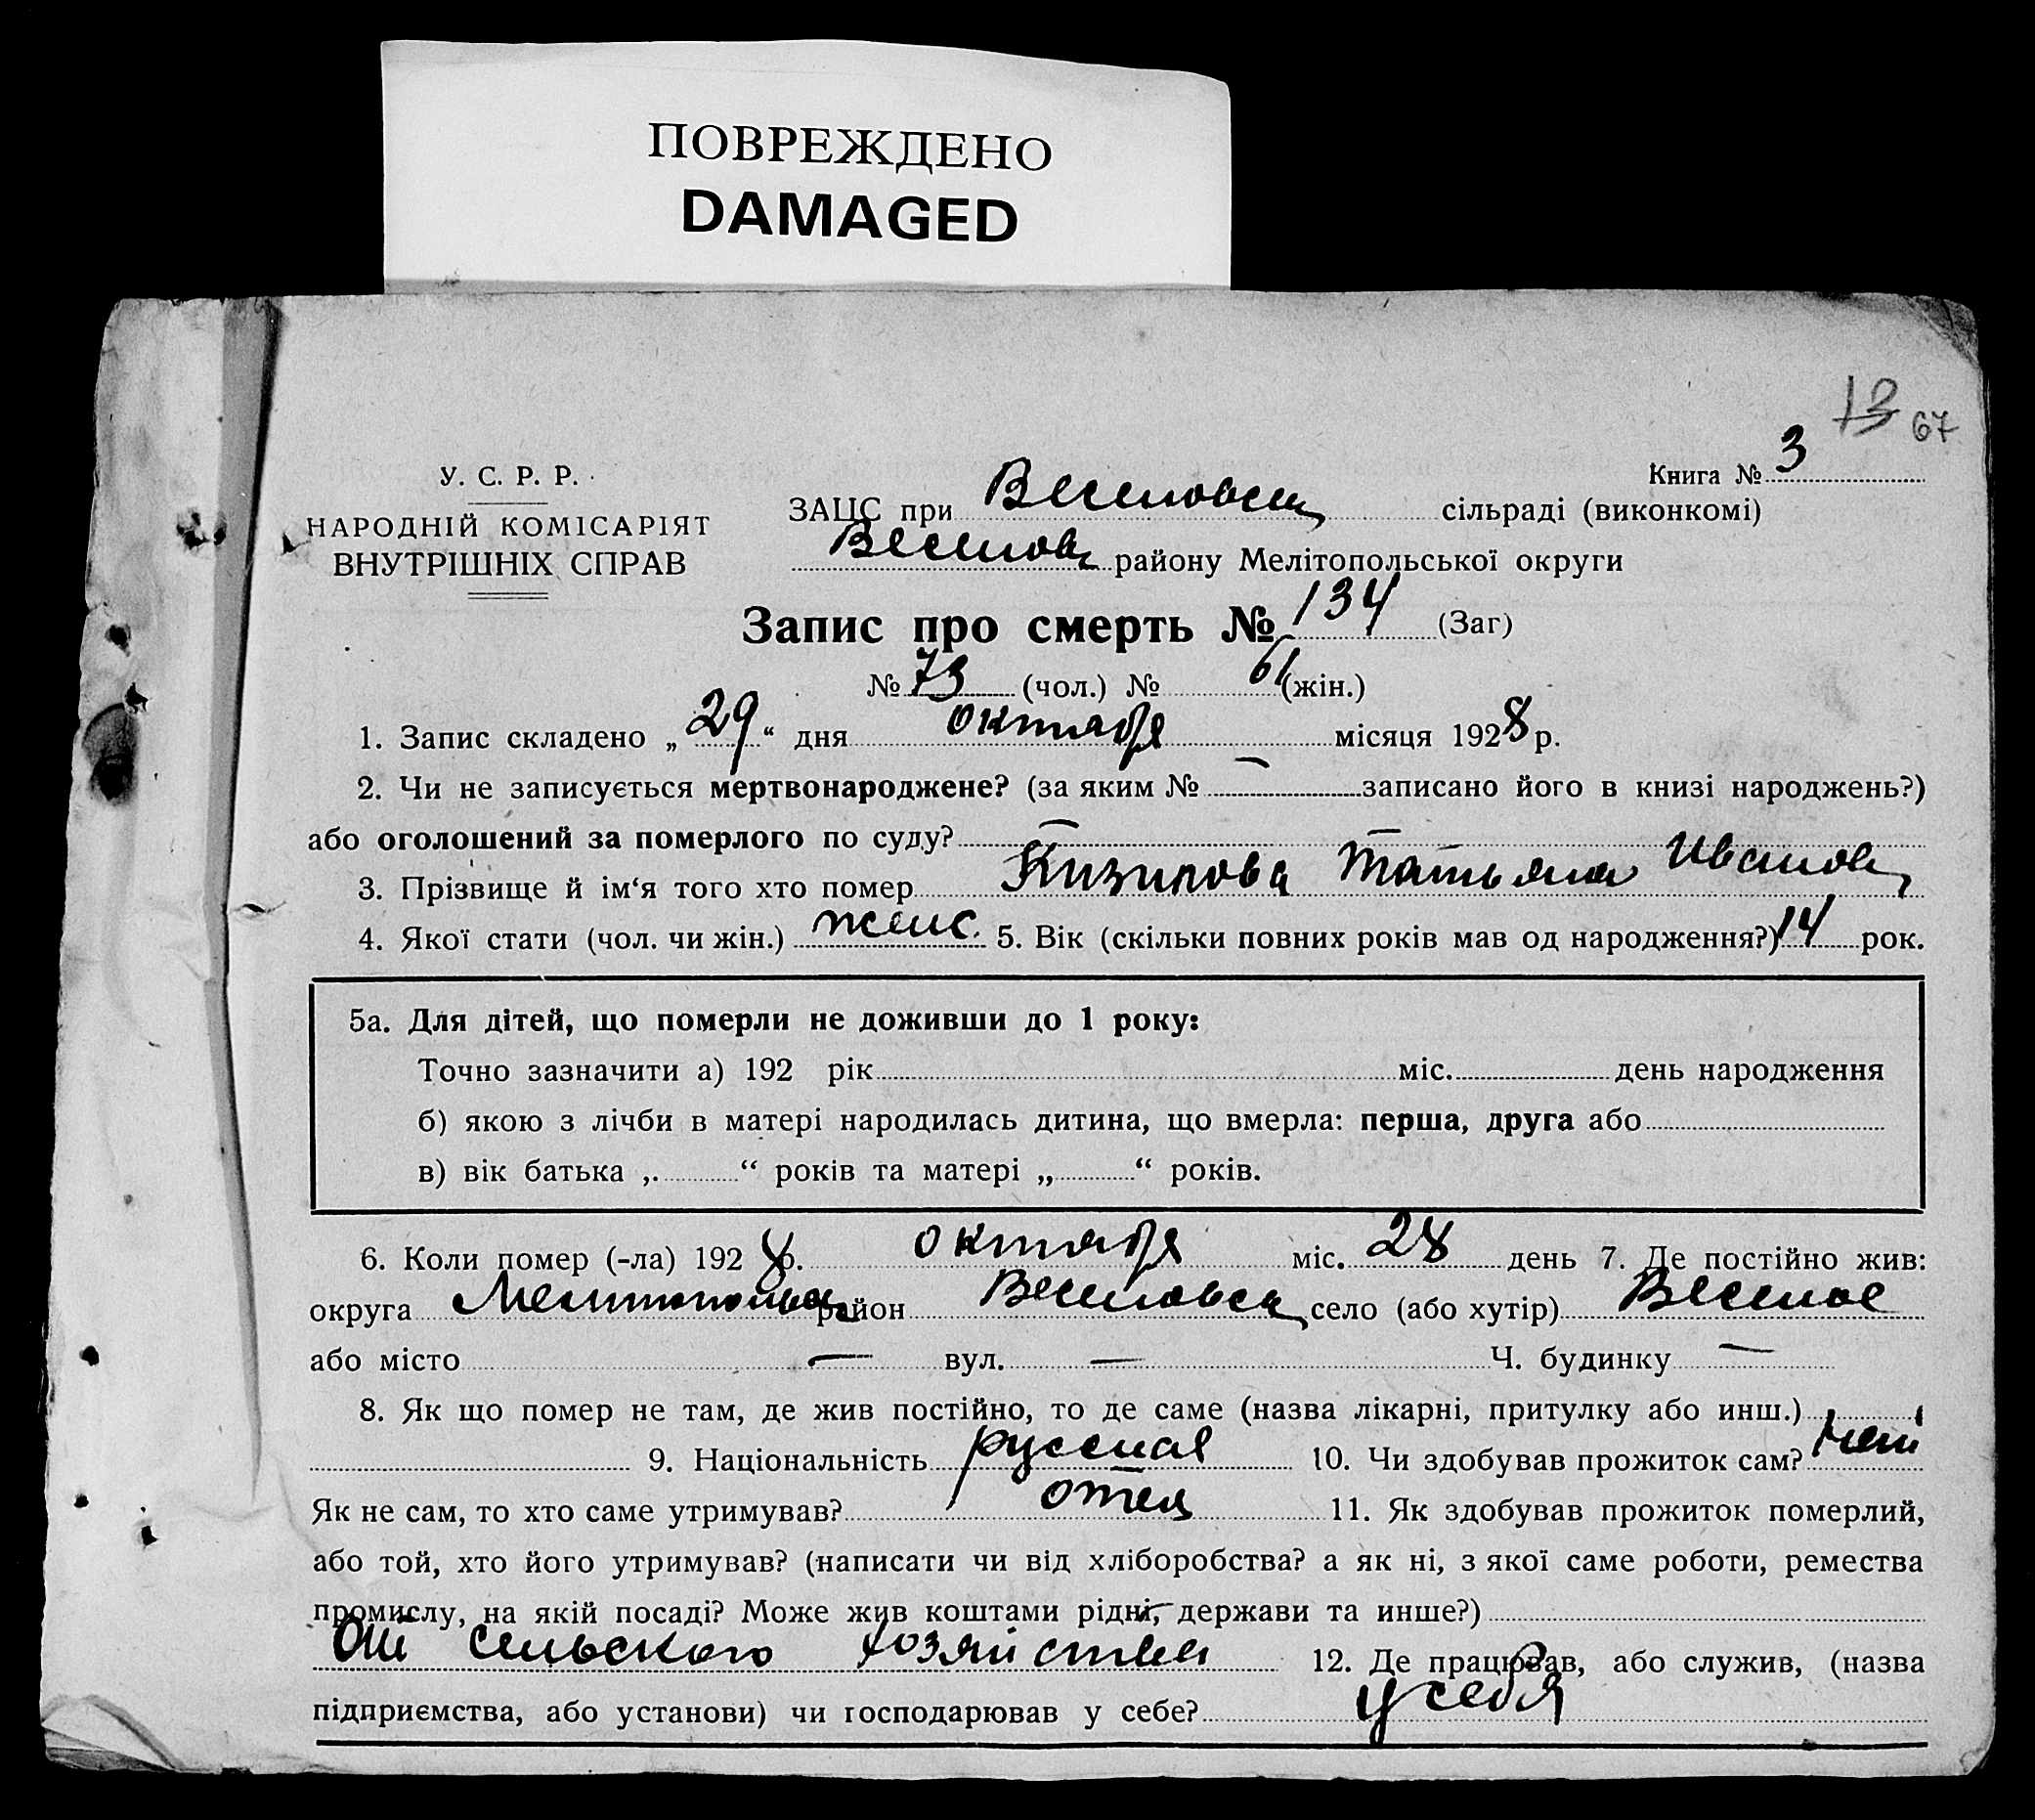 ПОВРЕЖДЕНО
DAMAGED
13 67
Книга № 3
У. С. Р. Р.
НАРОДНІЙ КОМІСАРІЯТ
ВНУТРІШНІХ СПРАВ
ЗАЦС при Веселовск сільраді (виконкомі)
Веселов району Мелітопольської округи
Запис про смерть № 134 (Заг)
№ 73 (чол.) № 61 (жін.)
1. Запис складено „ 29 “ дня октября місяця 1928 р.
2. Чи не записується мертвонароджене? (за яким № — записано його в книзі народжень?)
або оголошений за померлого по суду? — —
3. Прізвище й ім‘я того хто помер Татьяна Иванов
4. Якої стати (чол. чи жін.) женс. 5. Вік (скільки повних років мав од народження?) 14 рок.
5а. Для дітей, що померли не доживши до 1 року:
Точно зазначити а) 192 рік міс. день народження
б) якою з лічби в матері народилась дитина, що вмерла: перша, друга або
в) вік батька „ “ років та матері „ “ років.
6. Коли помер (-ла) 1928 р. октября міс. 28 день 7. Де постійно жив:
округа Мелитопольск район Веселовск село (або хутір) Веселое
або місто — вул. — Ч. будинку —
8. Як що помер не там, де жив постійно, то де саме (назва лікарні, притулку або инш.)
9. Національність русская 10. Чи здобував прожиток сам? нет
Як не сам, то хто саме утримував? отец 11. Як здобував прожиток померлий,
або той, хто його утримував? (написати чи від хліборобства? а як ні, з якої саме роботи, ремества
промислу, на якій посаді? Може жив коштами рідні, держави та инше?)
От сельского хозяйства 12. Де працював, або служив, (назва
підприємства, або установи) чи господарював у себе? у себя